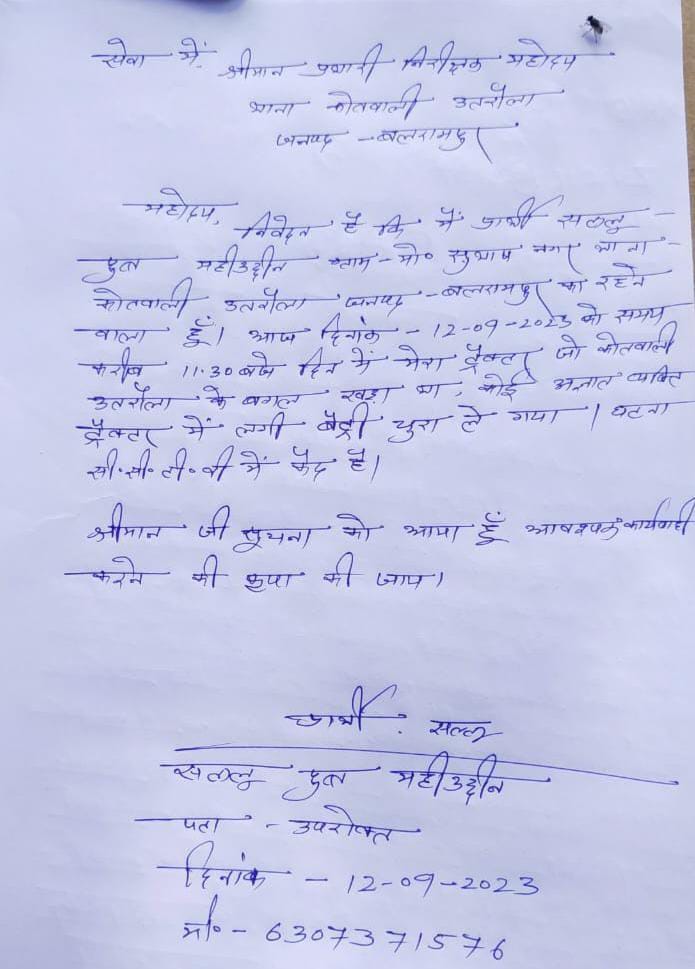 सेवा में,
श्रीमान प्रभारी निरीक्षक महोदय
थाना कोतवाली उतरौला
जनपद - बलरामपुर
महोदय,
निवेदन है कि मैं प्रार्थी सल्लू
पुत्र महीउद्दीन ग्राम - मो० सुभाष नगर थाना -
कोतवाली उतरौला जनपद - बलरामपुर का रहने
वाला हूँ। आज दिनांक - 12-09-2023 को समय
करीब 11.30 बजे दिन में मेरा ट्रैक्टर जो कोतवाली
उतरौला के बगल खड़ा था, कोई अज्ञात व्यक्ति
ट्रैक्टर में लगी बैट्री चुरा ले गया। घटना
सी.सी.टी.वी में कैद है।
श्रीमान जी सूचना को आया हूँ आवश्यक कार्यवाही
करने की कृपा की जाय।
प्रार्थी. सल्लू
सल्लू पुत्र महीउद्दीन
पता - उपरोक्त
दिनांक - 12-09-2023
मो० - 6307371576